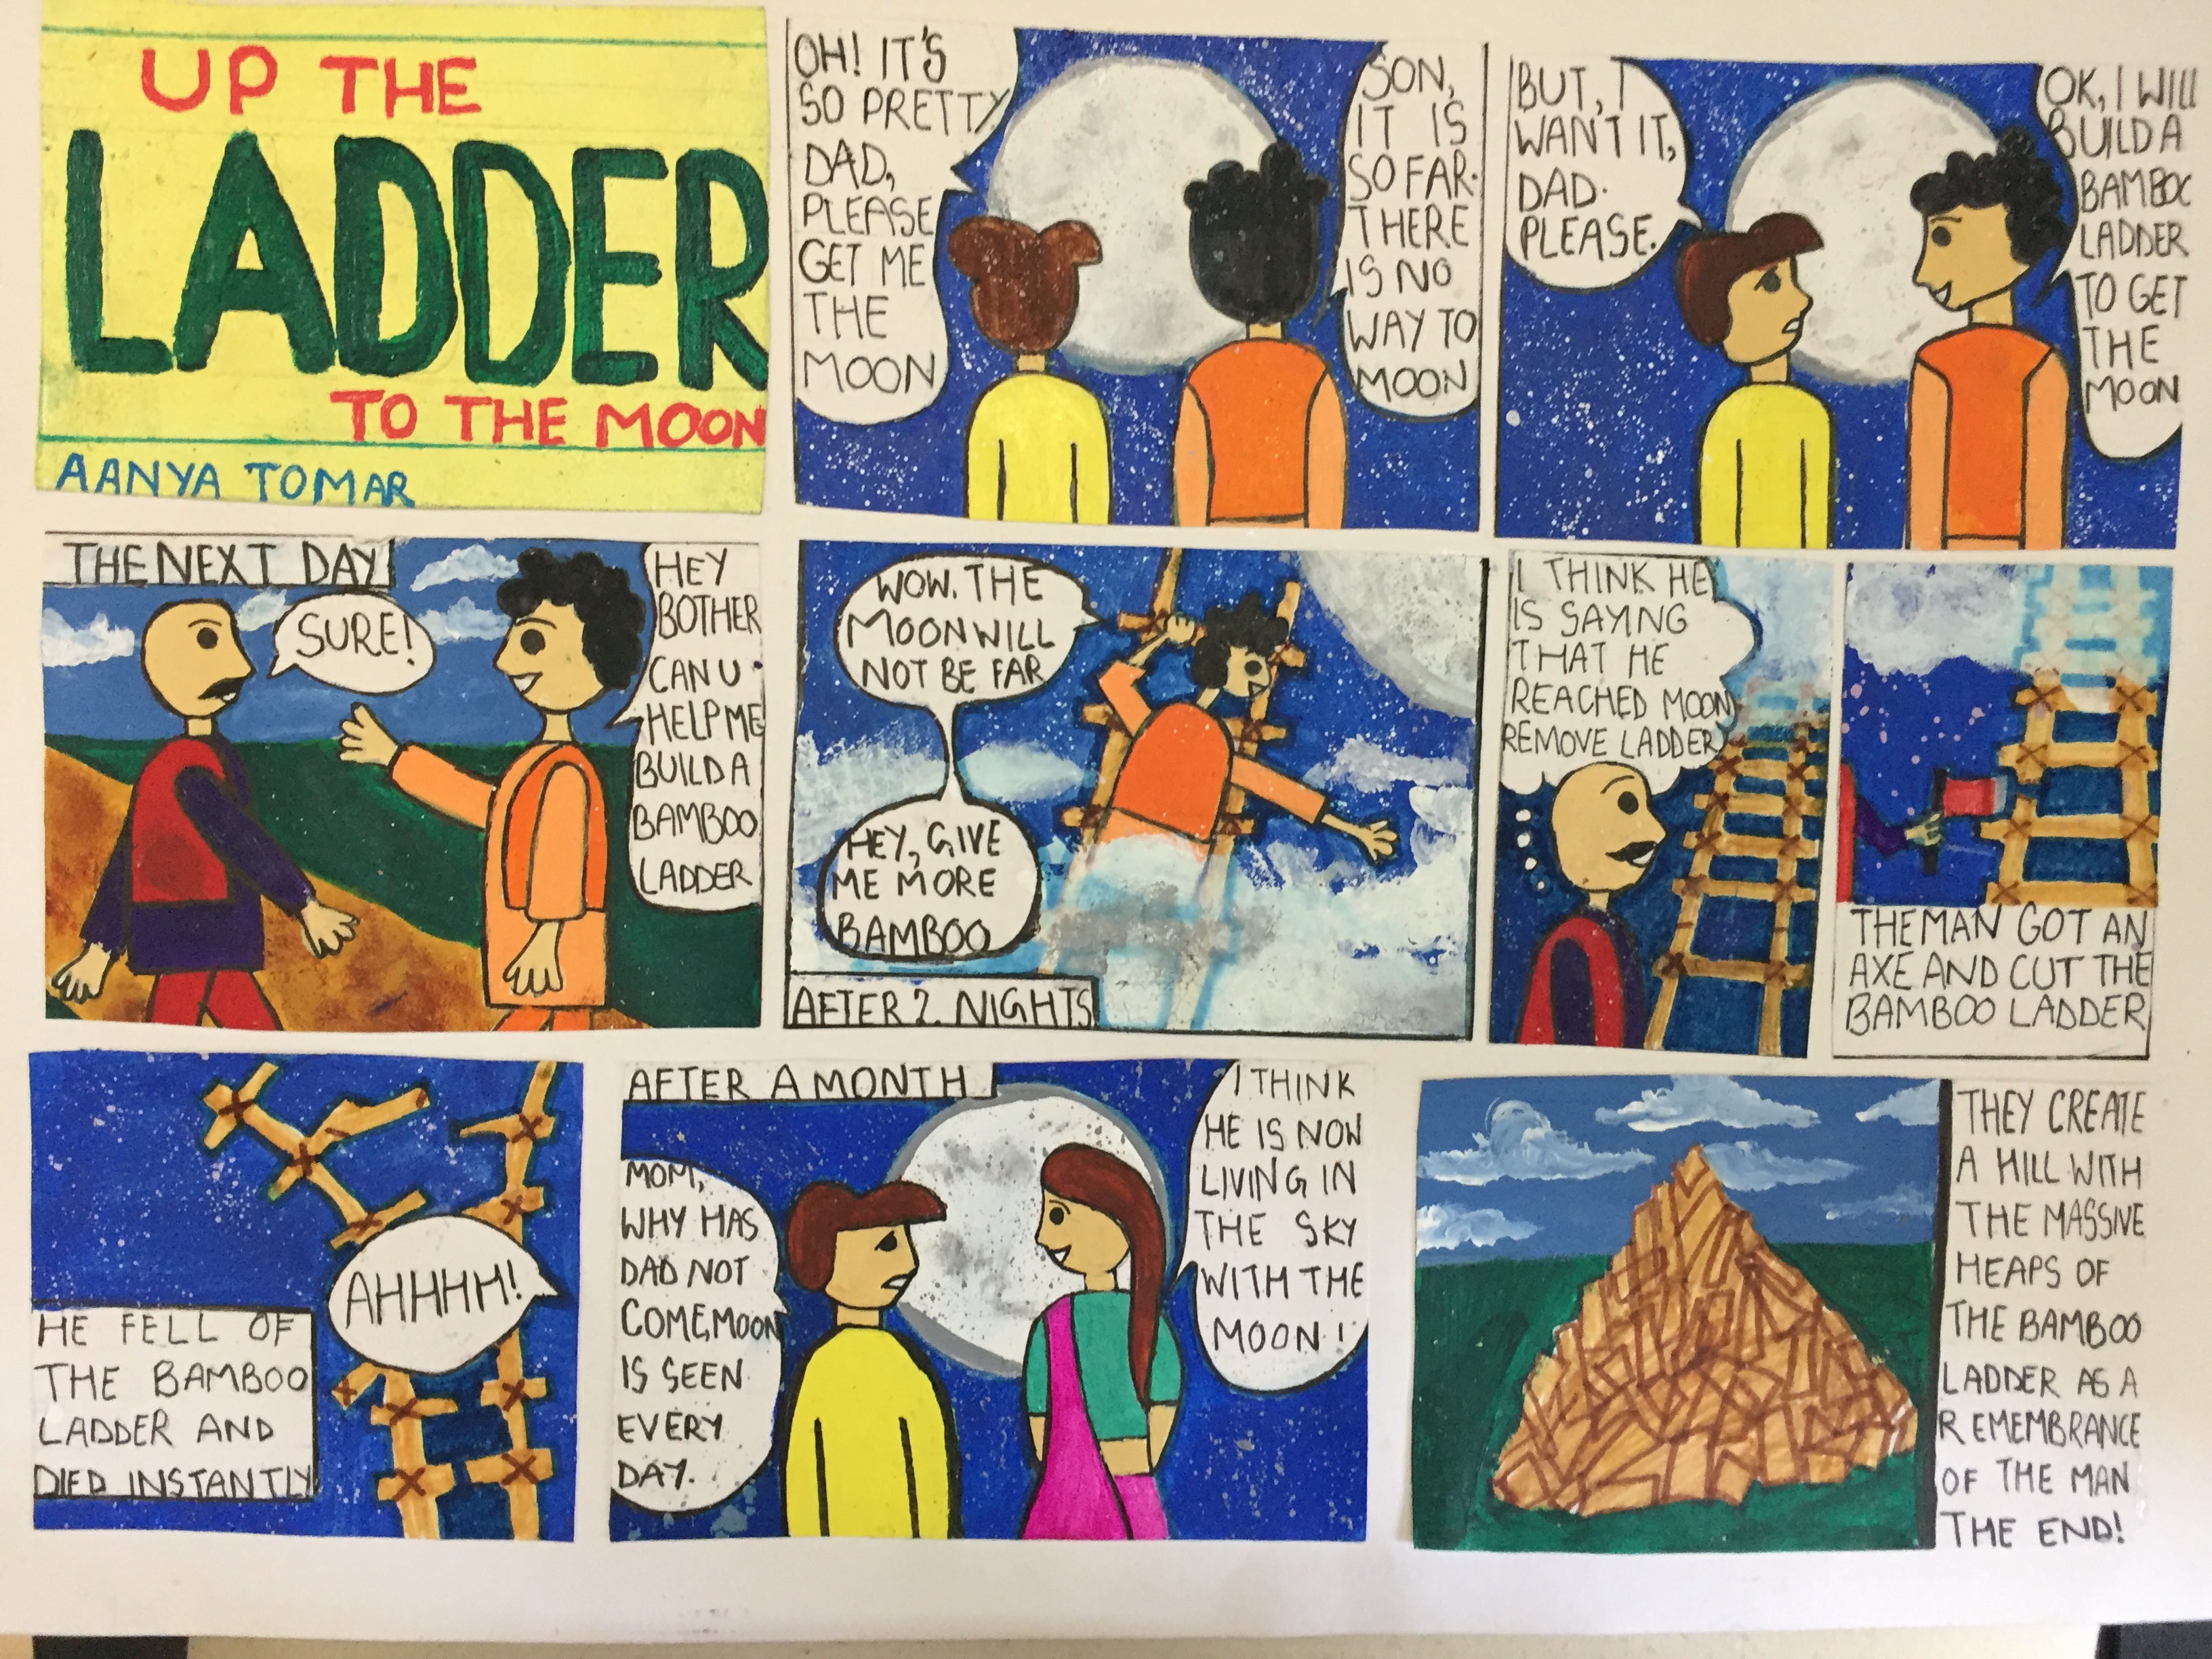 UP THE
LADDER
TO THE MOON
AANYA TOMAR
OH! IT'S
SO PRETTY
DAD,
PLEASE
GET ME
THE
MOON
SON,
IT IS
SO FAR.
THERE
IS NO
WAY TO
MOON
BUT, I
WANT IT,
DAD.
PLEASE.
OK, I WILL
BUILD A
BAMBOO
LADDER
TO GET
THE
MOON
THE NEXT DAY
SURE!
HEY
BOTHER
CAN U
HELP ME
BUILD A
BAMBOO
LADDER
WOW. THE
MOON WILL
NOT BE FAR
HEY, GIVE
ME MORE
BAMBOO
AFTER 2 NIGHTS
I THINK HE
IS SAYING
THAT HE
REACHED MOON
REMOVE LADDER
THE MAN GOT AN
AXE AND CUT THE
BAMBOO LADDER
HE FELL OF
THE BAMBOO
LADDER AND
DIED INSTANTLY
AHHHH!
AFTER A MONTH
MOM,
WHY HAS
DAD NOT
COME, MOON
IS SEEN
EVERY
DAY.
I THINK
HE IS NOW
LIVING IN
THE SKY
WITH THE
MOON!
THEY CREATE
A HILL WITH
THE MASSIVE
HEAPS OF
THE BAMBOO
LADDER AS A
REMEMBRANCE
OF THE MAN
THE END!